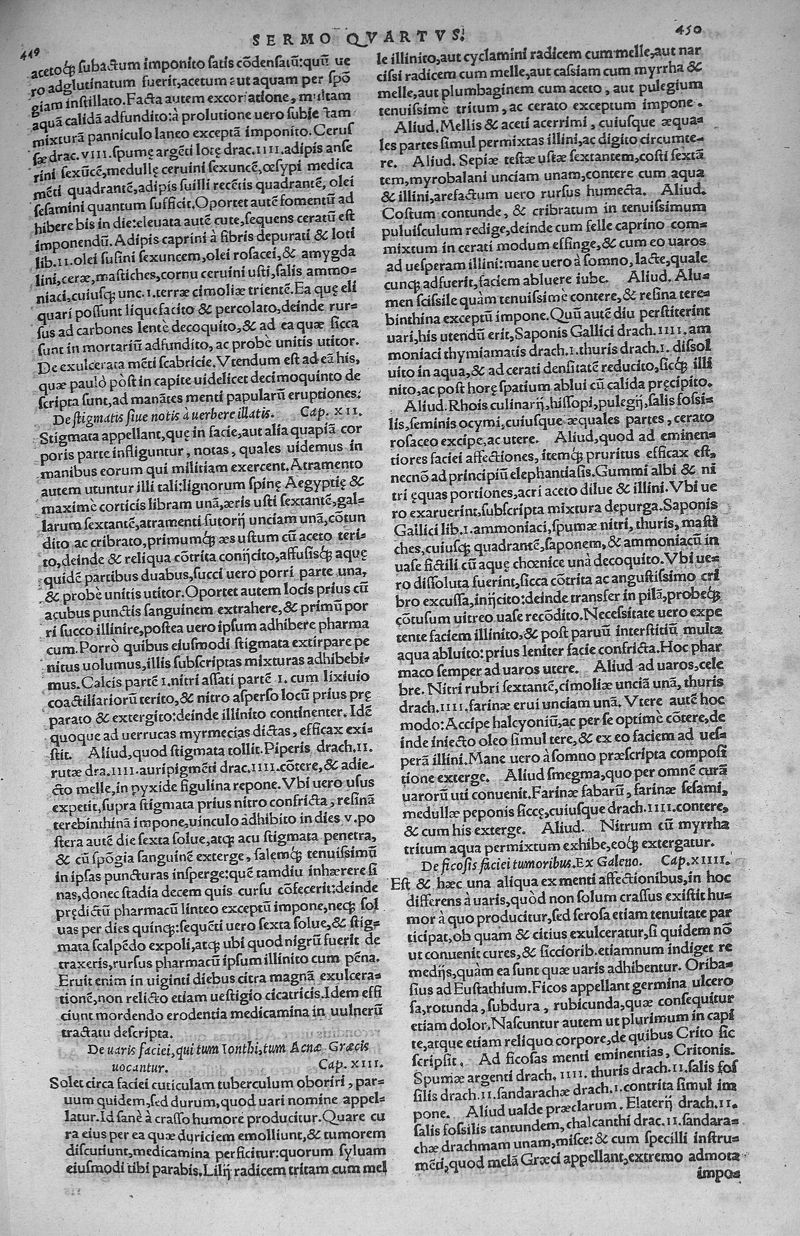 SERMO QVARTVS.
449
acetoq́; subactum imponito satis cõdensatũ: quũ ue
ro adglutinatum fuerit, acetum aut aquam per spõ
giam instillato. Facta autem excoriatione, multam
aquã calidã adfundito: à prolutione uero subiectam
mixturã panniculo laneo exceptã imponito. Cerus
sæ drac. VIII. spumę argēti lotę drac. IIII. adipis anse
rini sexũcē, medullę ceruini sexuncē, œsypi medica
mēti quadrantē, adipis suilli recētis quadrantē, olei
sesamini quantum sufficit. Oportet autē fomentũ ad
hibere bis in die: eleuata autē cute, sequens ceratũ est
imponendũ. Adipis caprini à fibris depurati & loti
lib. II. olei susini sexuncem, olei rosacei, & amygda
lini, ceræ, mastiches, cornu ceruini usti, salis ammo-
niaci, cuiusq́; unc. I. terræ cimoliæ trientē. Ea quę eli
quari possunt liquefacito & percolato, deinde rur-
sus ad carbones lentè decoquito, & ad ea quæ sicca
sunt in mortariũ adfundito, ac probè unitis utitor.
De exulcerata mēti scabricie. Vtendum est ad eã his,
quæ paulò pòst in capite uidelicet decimoquinto de
scripta sunt, ad manãtes menti papularũ eruptiones.
De stigmatis siue notis à uerbere illatis. Cap. XII.
Stigmata appellant, quę in facie, aut alia quapiã cor
poris parte infliguntur, notas, quales uidemus in
manibus eorum qui militiam exercent. Atramento
autem utuntur illi tali: lignorum spinę Aegyptię &
maximè corticis libram unã, æris usti sextantē, gal-
larum sextantē, atramenti sutorij unciam unã, cõtun
dito ac cribrato, primumq́; æs ustum cũ aceto teri-
to, deinde & reliqua cõtrita conijcito, affusisq́; aquę
quidē partibus duabus, succi uero porri parte una,
& probè unitis utitor. Oportet autem locis prius cũ
acubus punctis sanguinem extrahere, & primũ por
ri succo illinire, postea uero ipsum adhibere pharma
cum. Porrò quibus eiusmodi stigmata extirpare pe
nitus uolumus, illis subscriptas mixturas adhibebi-
mus. Calcis partē I. nitri assati partē I. cum lixiuio
coactiliariorũ terito, & nitro asperso locũ prius prę
parato & extergito: deinde illinito continenter. Idē
quoque ad uerrucas myrmecias dictas, efficax exi-
stit. Aliud, quod stigmata tollit. Piperis drach. II.
rutæ dra. IIII. auripigmēti drac. IIII. cõtere, & adie-
cto melle, in pyxide figulina repone. Vbi uero usus
expetit, supra stigmata prius nitro confricta, resinã
terebinthina impone, uinculo adhibito in dies V. po
stera autē die sexta solue, atq́; acu stigmata penetra,
& cũ spõgia sanguinē exterge, salemq́; tenuissimũ
in ipsas puncturas insperge: quē tamdiu inhærere si
nas, donec stadia decem quis cursu cõfecerit: deinde
prędictũ pharmacũ linteo exceptũ impone, neq́; sol
uas per dies quinq́;: sequēti uero sexta solue, & stig-
mata scalpēdo expoli, atq́; ubi quod nigrũ fuerit de
traxeris, rursus pharmacũ ipsum illinito cum pēna.
Eruit enim in uiginti diebus citra magnã exulcera-
tionē, non relicto etiam uestigio cicatricis. Idem effi
ciunt mordendo erodentia medicamina in uulnerũ
tractatu descripta.
De uaris faciei, qui tum Ionthi, tum Acnæ Græcis
uocantur. Cap. XIII.
Solet circa faciei cuticulam tuberculum oboriri, par-
uum quidem, sed durum, quod uari nomine appel-
latur. Id sanè à crasso humore producitur. Quare cu
ra eius per ea quæ duriciem emolliunt, & tumorem
discutiunt, medicamina perficitur: quorum syluam
eiusmodi tibi parabis. Lilij radicem tritam cum mel
450
le illinito, aut cyclamini radicem cum melle, aut nar
cissi radicem cum melle, aut cassiam cum myrrha &
melle, aut plumbaginem cum aceto, aut pulegium
tenuissimè tritum, ac cerato exceptum impone.
Aliud. Mellis & aceti acerrimi, cuiusque æqua-
les partes simul permixtas illini, ac digito circumte-
re. Aliud. Sepiæ testæ ustæ sextantem, costi sextã
tem, myrobalani unciam unam, contere cum aqua
& illini, arefactum uero rursus humecta. Aliud.
Costum contunde, & cribratum in tenuissimum
puluisculum redige, deinde cum felle caprino com-
mixtum in cerati modum effinge, & cum eo uaros
ad uesperam illini: mane uero à somno, lacte, quale
cunq́; adfuerit, faciem abluere iube. Aliud. Alu-
men scissile quàm tenuissimè contere, & resina tere-
binthina exceptũ impone. Quũ autē diu perstiterint
uari, his utendũ erit, Saponis Gallici drach. IIII. am
moniaci thymiamatis drach. I. thuris drach. I. dissol
uito in aqua, & ad cerati densitatē reducito, sicq́; illi
nito, ac post horę spatium ablui cũ calida pręcipito.
Aliud. Rhois culinarij, hissopi, pulegij, salis fossi-
lis, seminis ocymi, cuiusque æquales partes, cerato
rosaceo excipe, ac utere. Aliud, quod ad eminen-
tiores faciei affectiones, itemq́; pruritus efficax est,
necnõ ad principiũ elephantiasis. Gummi albi & ni
tri ęquas portiones, acri aceto dilue & illini. Vbi ue
ro exaruerint, subscripta mixtura depurga. Saponis
Gallici lib. I. ammoniaci, spumæ nitri, thuris, masti
ches, cuiusq́; quadrantē, saponem, & ammoniacũ in
uase fictili cũ aquę chœnice unà decoquito. Vbi ue-
ro dissoluta fuerint, sicca cõtrita ac angustissimo cri
bro excussa, inijcito: deinde transfer in pilã, probeq́;
cõtusum uitreo uase recõdito. Necessitate uero expe
tente faciem illinito, & post paruũ interstitiũ multa
aqua abluito: prius leniter facie confricta. Hoc phar
maco semper ad uaros utere. Aliud ad uaros, cele
bre. Nitri rubri sextantē, cimoliæ unciã unã, thuris
drach. IIII. farinæ erui unciam unã. Vtere autē hoc
modo: Accipe halcyoniũ, ac per se optimè cõtere, de
inde iniecto oleo simul tere, & ex eo faciem ad ues-
perã illini. Mane uero à somno præscripta composi
tione exterge. Aliud smegma, quo per omnē curã
uarorũ uti conuenit. Farinæ fabarũ, farinæ sesami,
medullæ peponis siccę, cuiusque drach. IIII. contere,
& cum his exterge. Aliud. Nitrum cũ myrrha
tritum aqua permixtum exhibe, eoq́; extergatur.
De ficosis faciei tumoribus. Ex Galeno. Cap. XIIII.
Est & hæc una aliqua ex menti affectionibus, in hoc
differens à uaris, quòd non solum crassus existit hu-
mor à quo producitur, sed serosa etiam tenuitate par
ticipat, ob quam & citius exulceratur, si quidem nõ
ut conuenit cures, & siccioribus etiamnum indiget re
medijs, quàm ea sunt quæ uaris adhibentur. Oriba-
sius ad Eustathium. Ficos appellant germina ulcero
sa, rotunda, subdura, rubicunda, quæ consequitur
etiam dolor. Nascuntur autem ut plurimum in capi
te, atque etiam reliquo corpore, de quibus Crito sic
scripsit. Ad ficosas menti eminentias, Critonis.
Spumæ argenti drach. IIII. thuris drach. II. salis fos
silis drach. II. sandarachæ drach. I. contrita simul im
pone. Aliud ualde præclarum. Elaterij drach. II.
salis fossilis tantundem, chalcanthi drac. II. sandara-
chæ drachmam unam, misce: & cum specilli instru-
mēti, quod melã Græci appellant, extremo admota
impo-